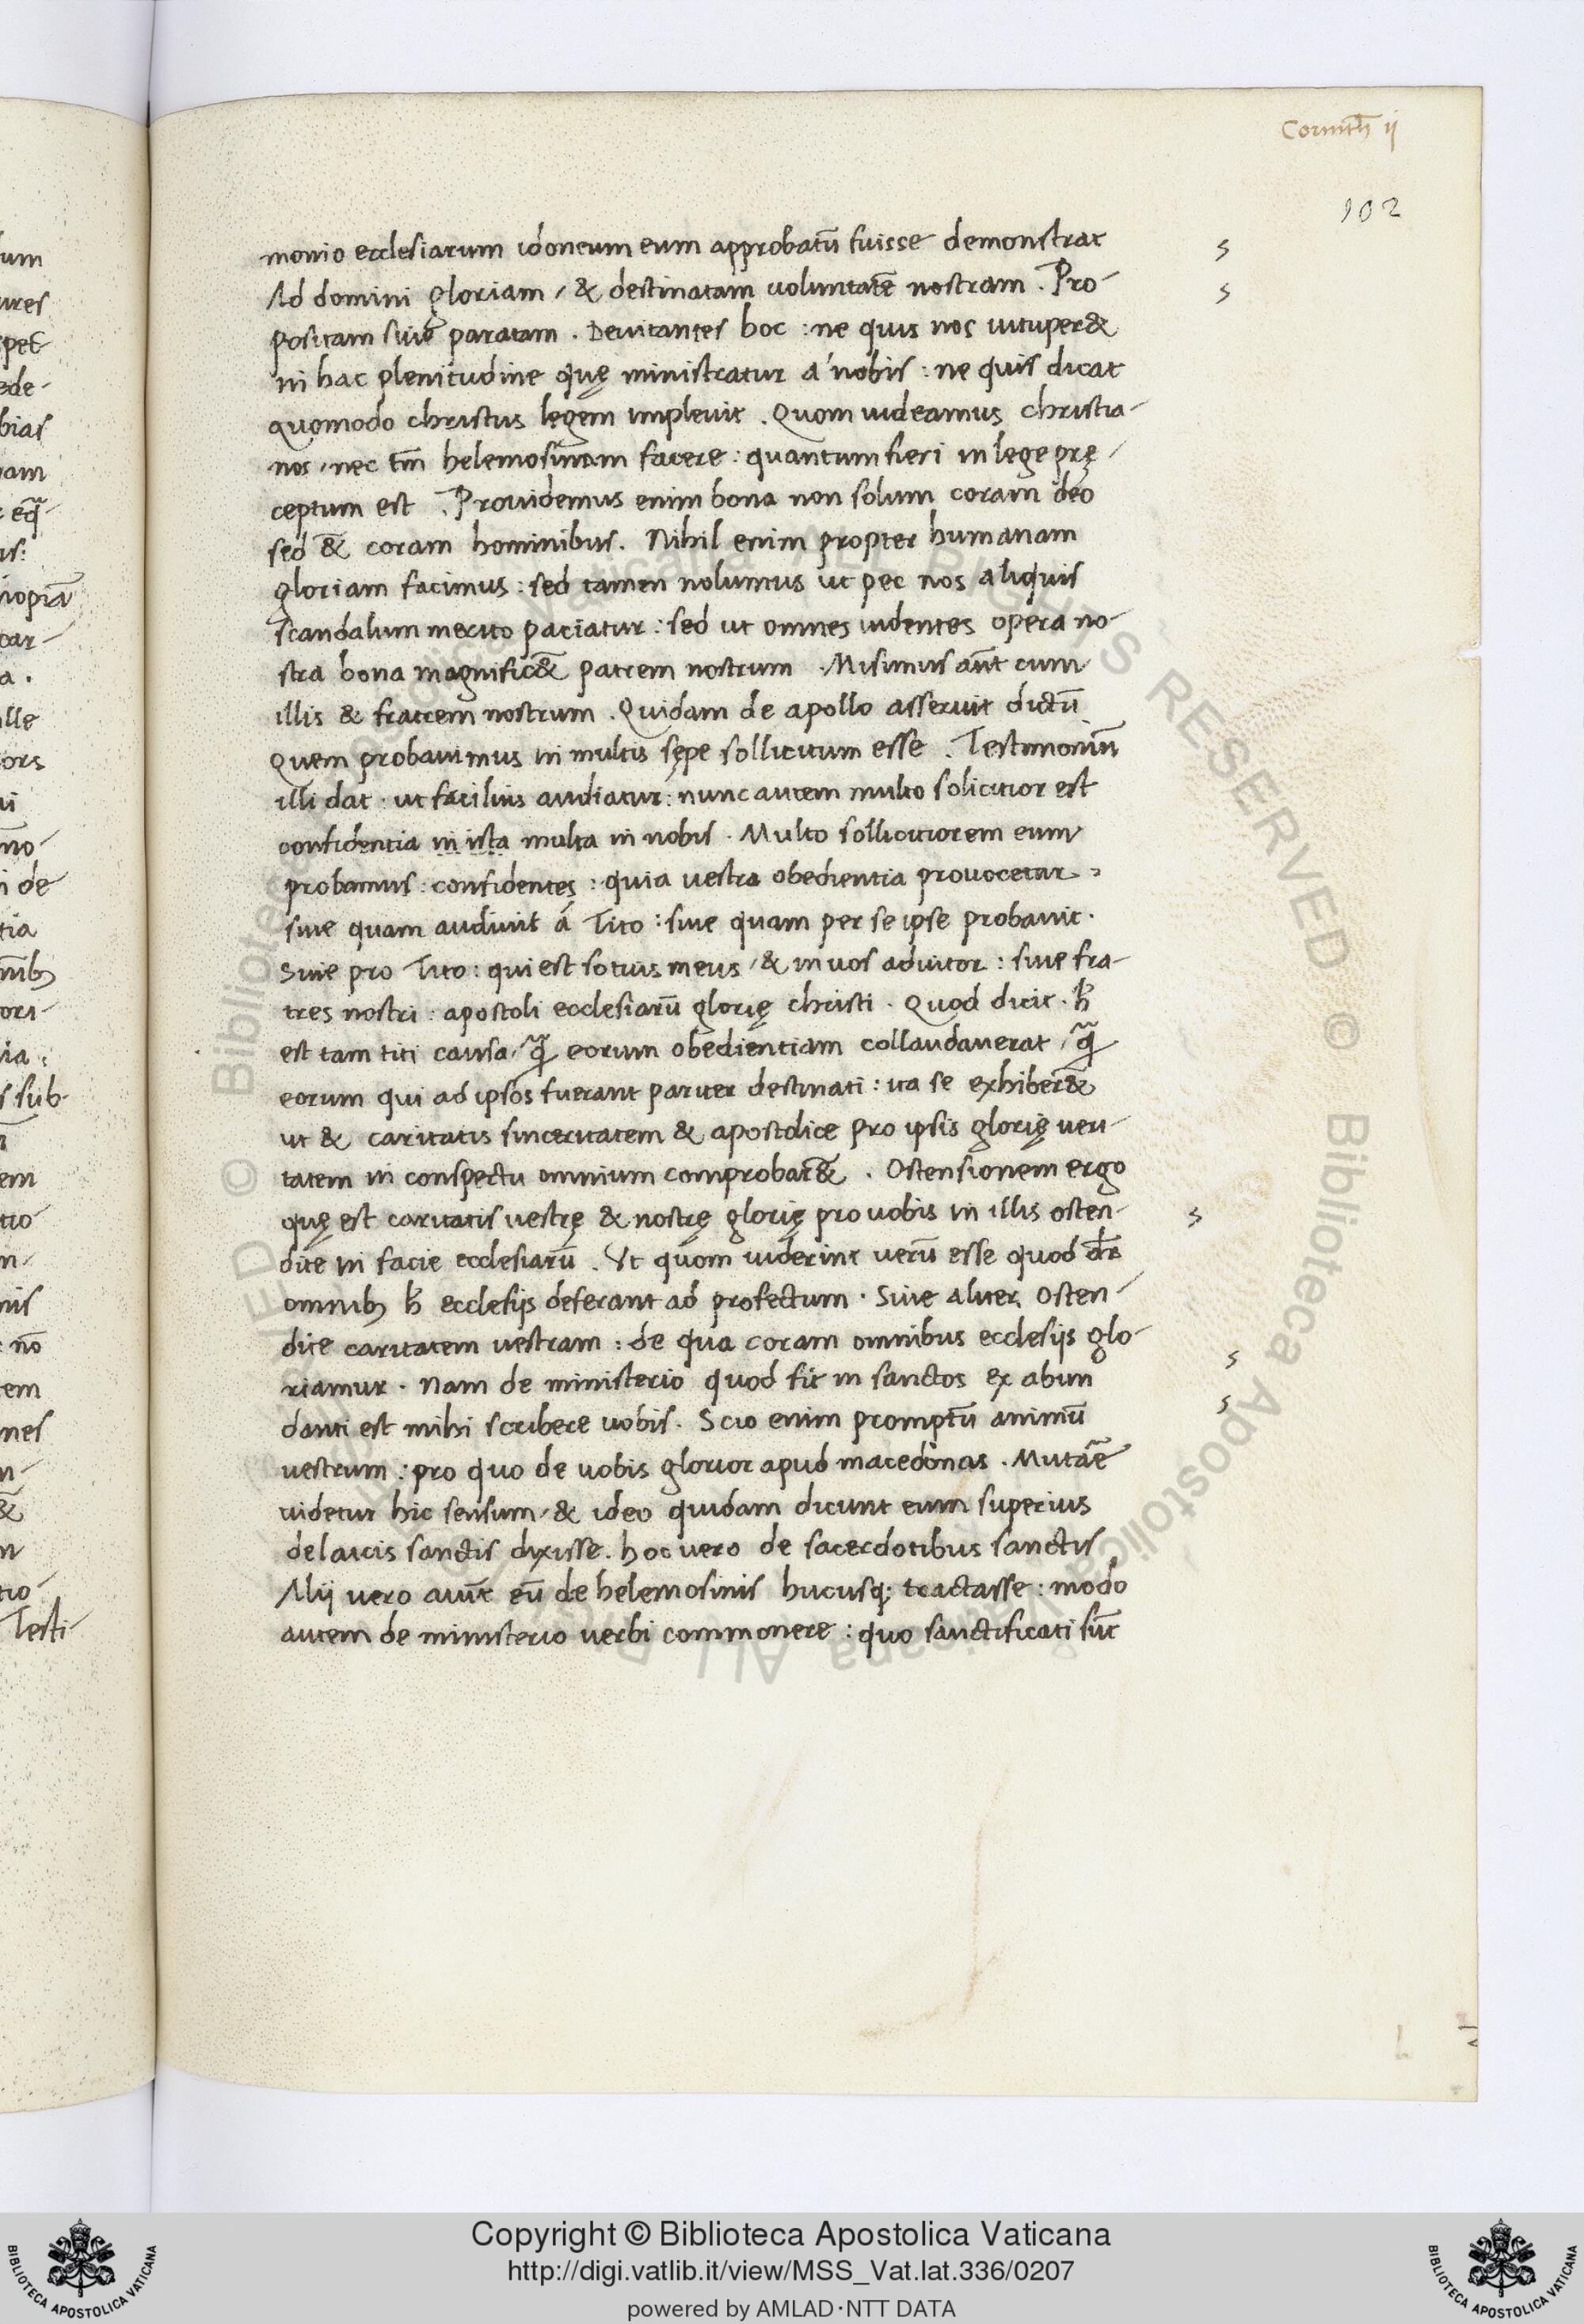 Corinth ij
102
monio ecclesiarum idoneum eum approbatū fuisse demonstrat
Ad domini gloriam / & destinatam uoluntatē nostram . Pro-
positam siue paratam . Deuitantes hoc : ne quis nos uituper&
in hac plenitudine quę ministratur á nobis : ne quis dicat
quomodo christus legem impleuit . Quom uideamus christia-
nos / nec tm̄ helemosinam facere : quantum fieri in lege prę /
ceptum est . Prouidemus enim bona non solum coram deo
sed & coram hominibus . Nihil enim propter humanam
gloriam facimus : sed tamen nolumus ut pec nos aliquis
scandalum merito patiatur : sed ut omnes uidentes opera no-
stra bona magnific& patrem nostrum . Misimus aūt cum
illis & fratrem nostrum . Quidam de apollo asseruit dictū
Quem probauimus in multis sępe sollicitum esse . Testimoniū
illi dat : ut facilius audiatur : nunc autem multo solicitior est
confidentia in ista multa in nobis . Multo sollicitiorem eum
probamus : confidentes : quia uestra obedientia prouocetur
siue quam audiuit á Tito : siue quam per se ipse probauit .
Siue pro Tito : qui est sotius meus / & in uos adiutor : siue fra-
tres nostri : apostoli ecclesiarū glorię christi . Quod dicit . h̄
est tam titi causa / q̄ eorum obedientiam collaudauerat / q̄
eorum qui ad ipsos fuerant pariter destinati : ita se exhiber&
ut & caritatis sinceritatem & apostolice pro ipsis glorię ueri-
tatem in conspectu omnium comprobar& . Ostensionem ergo
quę est caritatis uestrę & nostrę glorię pro uobis in illis osten-
dite in facie ecclesiarū . Vt quom uiderint uerū esse quod dr̄
omnib; h̄ ecclesijs deferant ad profectum . Siue aliter . Osten-
dite caritatem uestram : de qua coram omnibus ecclesijs glo-
riamur . Nam de ministerio quod fit in sanctos ex abun
danti est mihi scribere uobis . Scio enim promptū animū
uestrum : pro quo de uobis glorior apud macedonas . Mutāē
uidetur hic sensum / & ideo quidam dicunt eum superius
de laicis sanctis dixisse . hoc uero de sacerdotibus sanctis
Alij uero aiūt eū de helemosinis hucusq; tractasse : modo
autem de ministerio uerbi commonere : quo sanctificati sūt
Copyright © Biblioteca Apostolica Vaticana
http://digi.vatlib.it/view/MSS_Vat.lat.336/0207
powered by AMLAD·NTT DATA